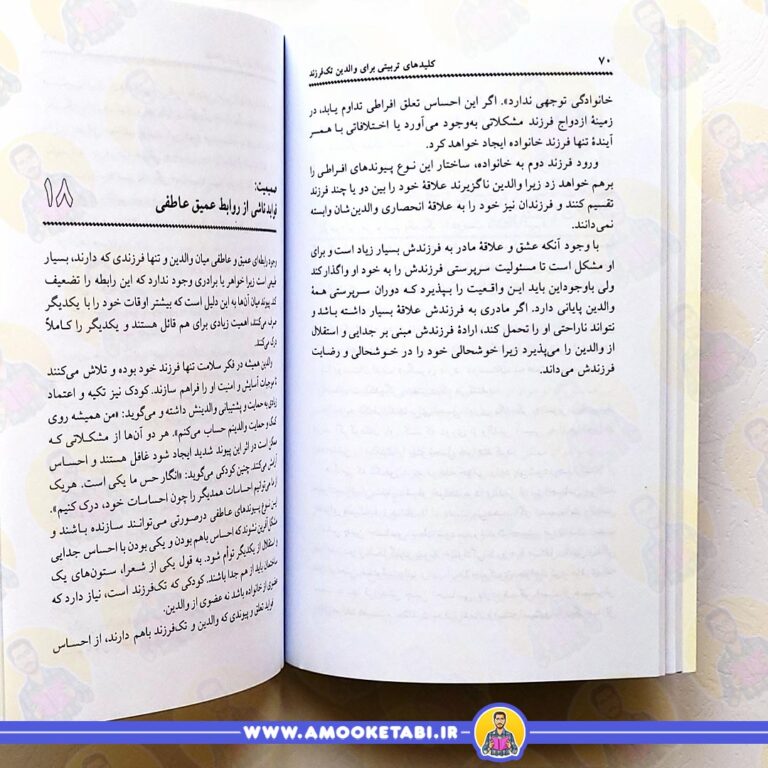 ۷۰
کلیدهای تربیتی برای والدین تک‌فرزند
خانوادگی توجهی ندارد». اگر این احساس تعلق افراطی تداوم یابد، در
زمینهٔ ازدواج فرزند مشکلاتی به‌وجود می‌آورد یا اختلافاتی با همسر
آیندهٔ تنها فرزند خانواده ایجاد خواهد کرد.
ورود فرزند دوم به خانواده، ساختار این نوع پیوندهای افراطی را
برهم خواهد زد زیرا والدین ناگزیرند علاقهٔ خود را بین دو یا چند فرزند
تقسیم کنند و فرزندان نیز خود را به علاقهٔ انحصاری والدین‌شان وابسته
نمی‌دانند.
با وجود آنکه عشق و علاقهٔ مادر به فرزندش بسیار زیاد است و برای
او مشکل است تا مسئولیت سرپرستی فرزندش را به خود او واگذار کند
ولی باوجوداین باید این واقعیت را بپذیرد که دوران سرپرستی همهٔ
والدین پایانی دارد. اگر مادری به فرزندش علاقهٔ بسیار داشته باشد و
نتواند ناراحتی او را تحمل کند، ارادهٔ فرزندش مبنی بر جدایی و استقلال
از والدین را می‌پذیرد زیرا خوشحالی خود را در خوشحالی و رضایت
فرزندش می‌داند.
۱۸
صمیمیت:
فواید ناشی از روابط عمیق عاطفی
وجود رابطه‌ای عمیق و عاطفی میان والدین و تنها فرزندی که دارند، بسیار
طبیعی است زیرا خواهر یا برادری وجود ندارد که این رابطه را تضعیف
کند. پیوند میان آن‌ها به این دلیل است که بیشتر اوقات خود را با یکدیگر
صرف می‌کنند، اهمیت زیادی برای هم قائل هستند و یکدیگر را کاملاً
درک می‌کنند.
والدین همیشه در فکر سلامت تنها فرزند خود بوده و تلاش می‌کنند
تا موجبات آسایش و امنیت او را فراهم سازند. کودک نیز تکیه و اعتماد
زیادی به حمایت و پشتیبانی والدینش داشته و می‌گوید: «من همیشه روی
کمک و حمایت والدینم حساب می‌کنم». هر دو آن‌ها از مشکلاتی که
ممکن است در اثر این پیوند شدید ایجاد شود غافل هستند و احساس
آرامش می‌کنند. چنین کودکی می‌گوید: «انگار حس ما یکی است. هریک
از ما می‌توانیم احساسات همدیگر را چون احساسات خود، درک کنیم».
این نوع پیوندهای عاطفی درصورتی می‌توانند سازنده باشند و
مشکل‌آفرین نشوند که احساس باهم بودن و یکی بودن با احساس جدایی
و استقلال از یکدیگر توأم شود. به قول یکی از شعرا، ستون‌های یک
ساختمان باید از هم جدا باشند. کودکی که تک‌فرزند است، نیاز دارد که
عضوی از خانواده باشد نه عضوی از والدین.
فواید تعلق و پیوندی که والدین و تک‌فرزند باهم دارند، از احساس
WWW.AMOOKETABI.IR